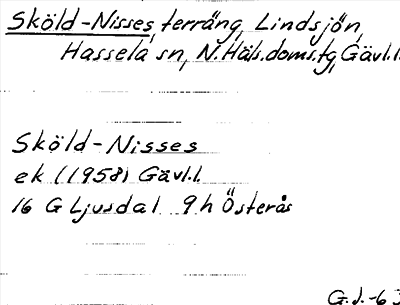 Sköld-Nisses, terräng, Lindsjön,
Hassela sn, N.Häls.doms.tg, Gävl.l.
Sköld-Nisses
ek (1958) Gävl.l.
16 G Ljusdal 9 h Österås
G.J.-63